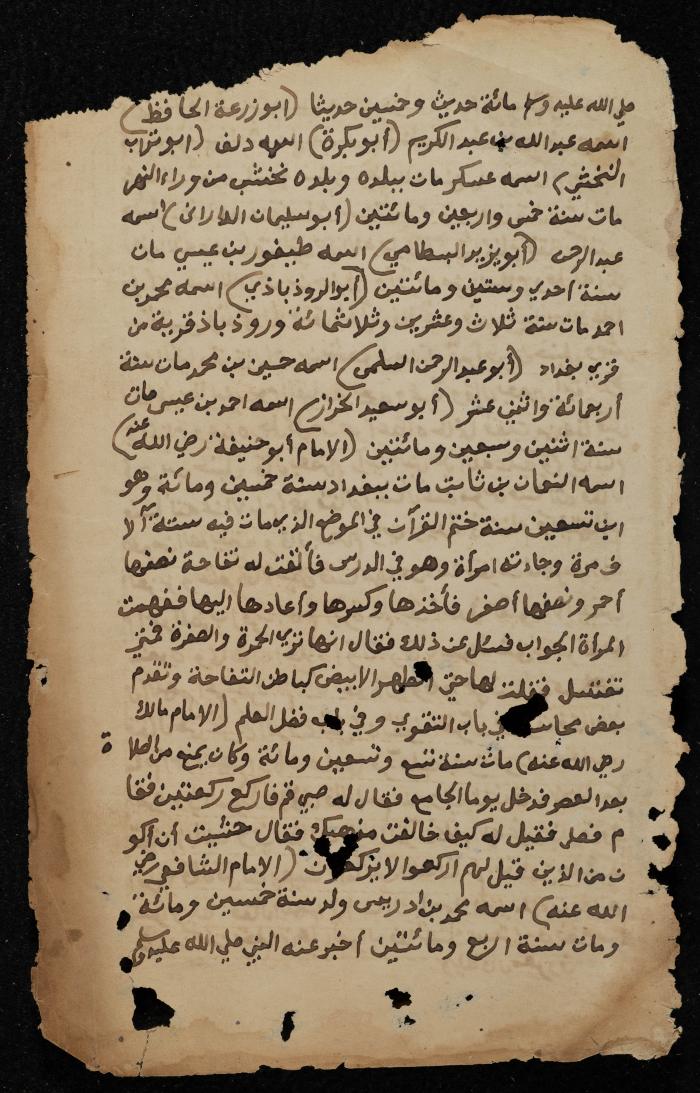 صلى الله عليه وسلم مائة حديث وخمسين حديثا (ابوزرعة الحافظ)
اسمه عبدالله بن عبد الكريم (أبوبكرة) اسمه دلف (ابوتراب
النخشبي) اسمه عسكر مات ببلده وبلده نخشب من وراء النهر
مات سنة خمس واربعين ومائتين (أبو سليمان الدارانى) اسمه
عبد الرحمن (أبو يزيد البسطامي) اسمه طيفور بن عيسي مات
سنة احدي وستين ومائتين (أبو الروذباذي) اسمه محمد بن
احمد مات سنة ثلاث وعشرين وثلاثمائة وروذباذ قرية من
قري بغداد (أبو عبد الرحمن السلمى) اسمه حسين بن محمد مات سنة
أربعمائة واثني عشر (أبو سعيد الخراز) اسمه احمد بن عيسى مات
سنة اثنين وسبعين ومائتين (الامام أبو حنيفة رضي الله عنه)
اسمه النعمان بن ثابت مات ببغداد سنة خمسين ومائة وهو
ابن تسعين سنة ختم القرآن في الموضع الذي مات فيه ستة آلا
ف مرة وجاءته امرأة وهو في الدرس فألقت له تفاحة نصفها
أحمر ونصفها أصفر فأخذها وكسرها وأعادها اليها ففهمت
المرأة الجواب فسئل عن ذلك فقال انها تري الحمرة والصفرة فمتى
تغتسل فقلت لها حتى الطهر الابيض كباطن التفاحة وتقدم
بعض محاسنه في باب التقوي وفي باب فضل العلم (الامام مالك
رضي الله عنه) مات سنة تسع وتسعين ومائة وكان يمنع من الصلا
ة
بعد العصر فدخل يوما الجامع فقال له صبي قم فاركع ركعتين فقا
م فصلى فقيل له كيف خالفت مذهبك فقال خشيت أن أكو
ن من الذين قيل لهم اركعوا لا يركعون (الامام الشافعي رضي
الله عنه) اسمه محمد بن ادريس ولد سنة خمسين ومائة
ومات سنة اربع ومائتين أخبر عنه النبي صلي الله عليه وسلم